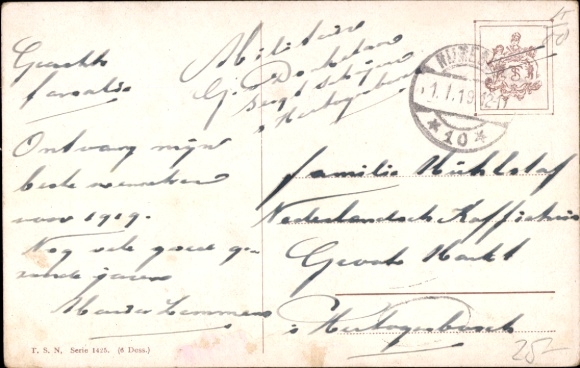 Geachte
familie
Ontvang mijn
beste wenschen
voor 1919.
Nog vele goede ge-
zonde jaren
Militair
G.
Sergt
s Hertogenbosch
NIJMEGEN
1.1.19. 12-1
* 10 *
familie Mühlstaf
Nederlandsch Koffiehuis
Groote Markt
s Hertogenbosch
T. S. N. Serie 1425. (6 Dess.)
25-